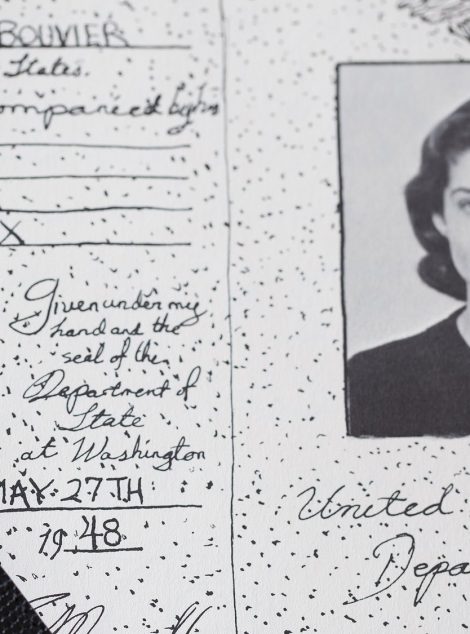 BOUVIER
States.
ompanied by
X
Given under my
hand and the
seal of the
Department of
State
at Washington
MAY 27TH
19 48
United
Depa